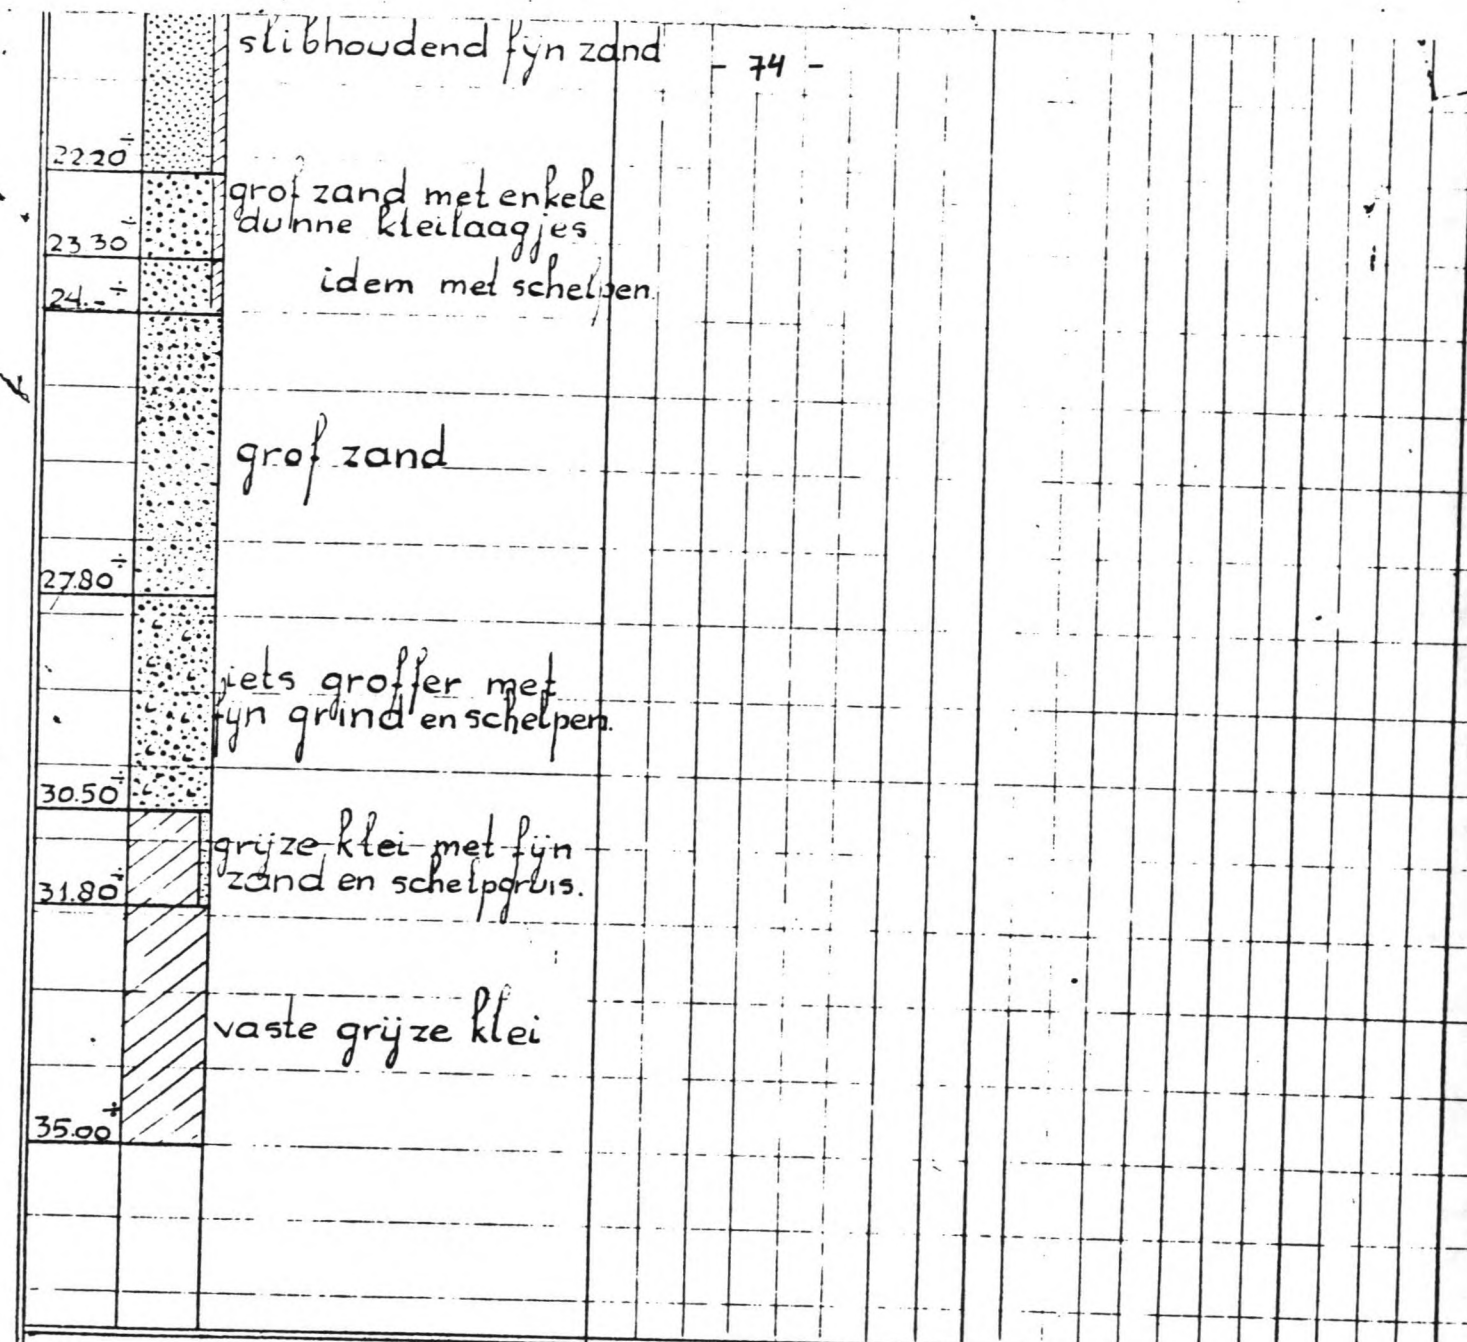 slibhoudend fijn zand
- 74 -
22.20 ÷
grof zand met enkele
dunne kleilaagjes
23.30 ÷
idem met schelpen.
24.- ÷
grof zand
27.80 ÷
iets groffer met
fijn grind en schelpen.
30.50 ÷
grijze klei met fijn
zand en schelpgruis.
31.80 ÷
vaste grijze klei
35.00 ÷